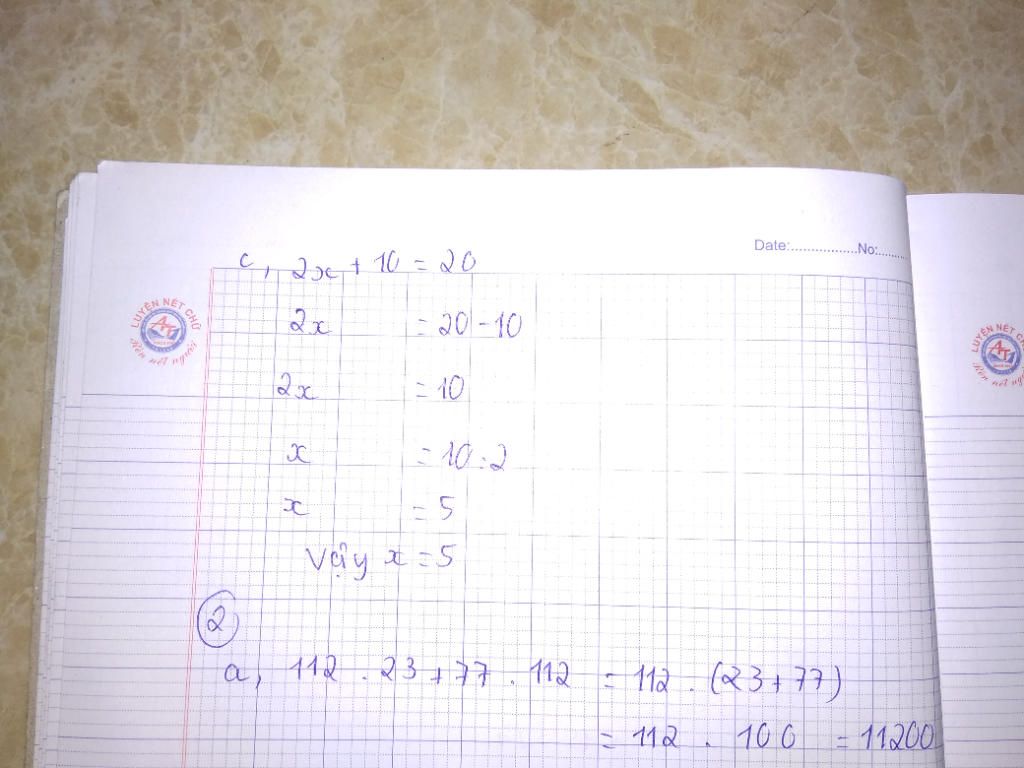 Date:................No:........
c, 2x + 10 = 20
LUYỆN NÉT CHỮ
AT
Rèn nết người
2x = 20 - 10
2x = 10
x = 10 : 2
x = 5
Vậy x = 5
2
a, 112 . 23 + 77 . 112 = 112 . (23 + 77)
= 112 . 100 = 11200
LUYỆN NÉT CH
AT
Rèn nết ng